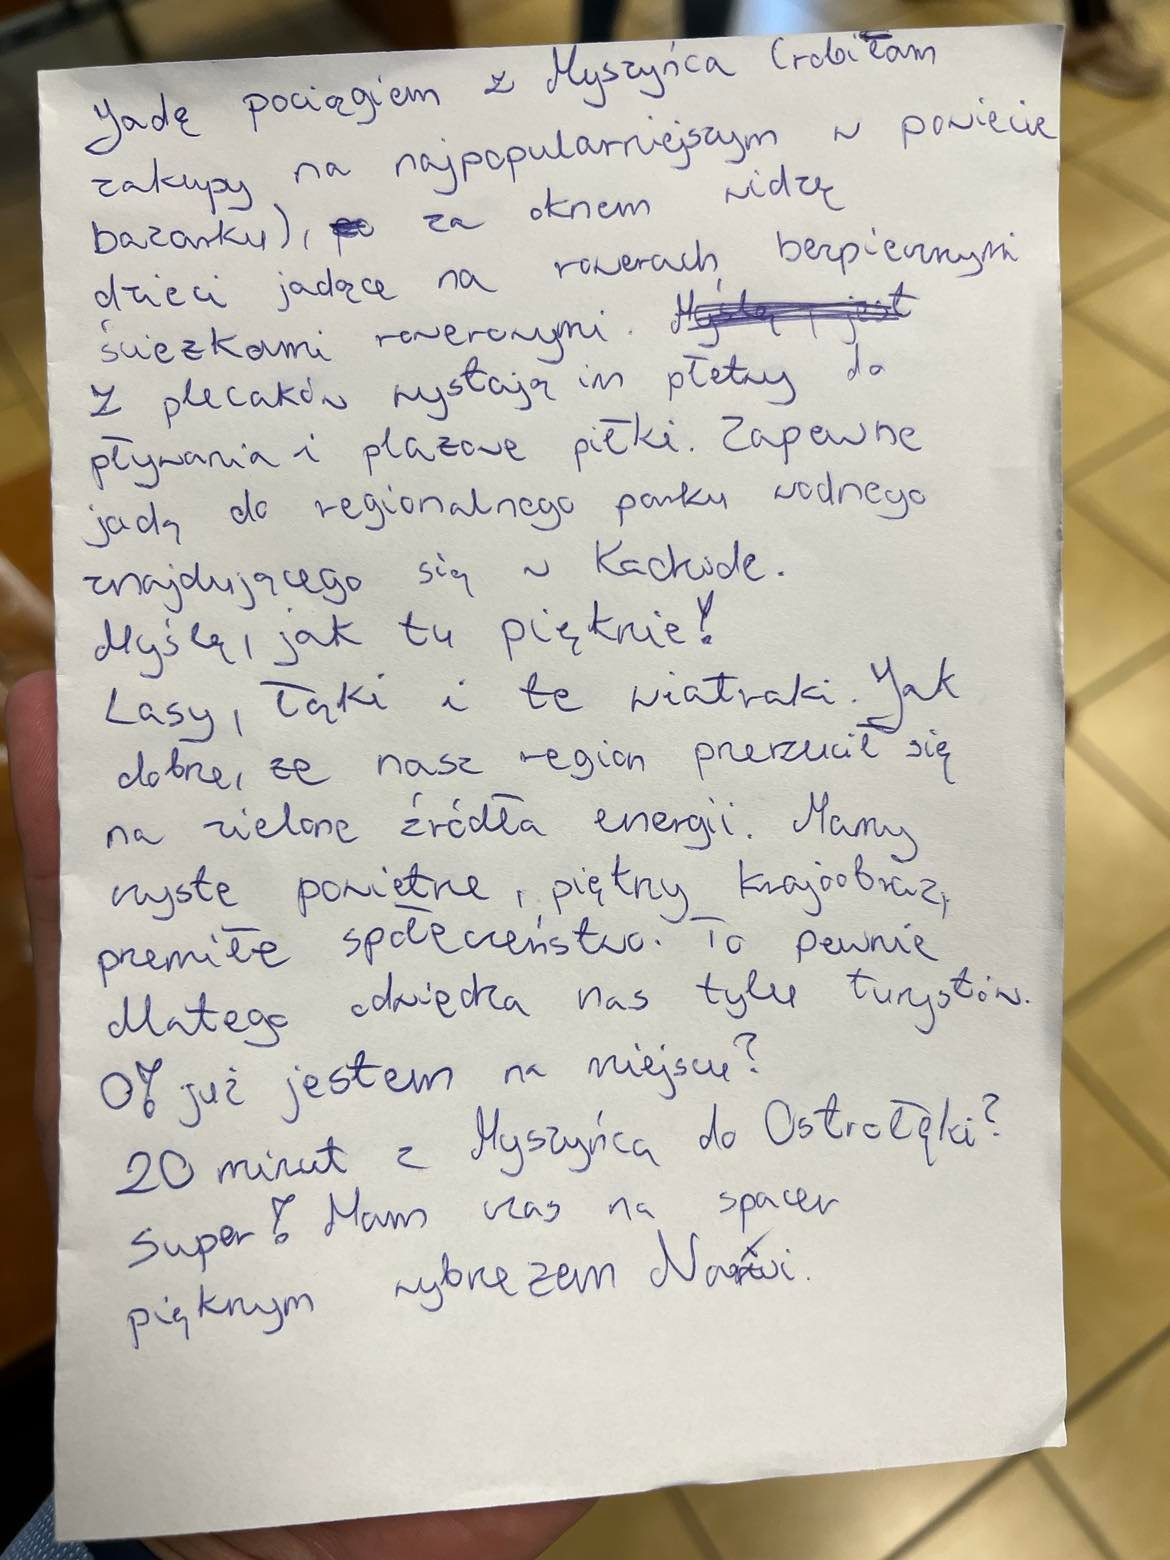 Jadę pociągiem z Myszyńca (robiłam
zakupy na najpopularniejszym w powiecie
bazarku), za oknem widzę
dzieci jadące na rowerach bezpiecznymi
ścieżkami rowerowymi. Myślę, jest
Z plecaków wystają im płetwy do
pływania i plażowe piłki. Zapewne
jadą do regionalnego parku wodnego
znajdującego się w Kadzidle.
Myślę, jak tu pięknie!
Lasy, łąki i te wiatraki. Jak
dobrze, że nasz region przerzucił się
na zielone źródła energii. Mamy
czyste powietrze, piękny krajoobraz,
przemiłe społeczeństwo. To pewnie
dlatego odwiedza nas tylu turystów.
O! już jestem na miejscu?
20 minut z Myszyńca do Ostrołęki?
Super! Mam czas na spacer
pięknym wybrzeżem Narwi.